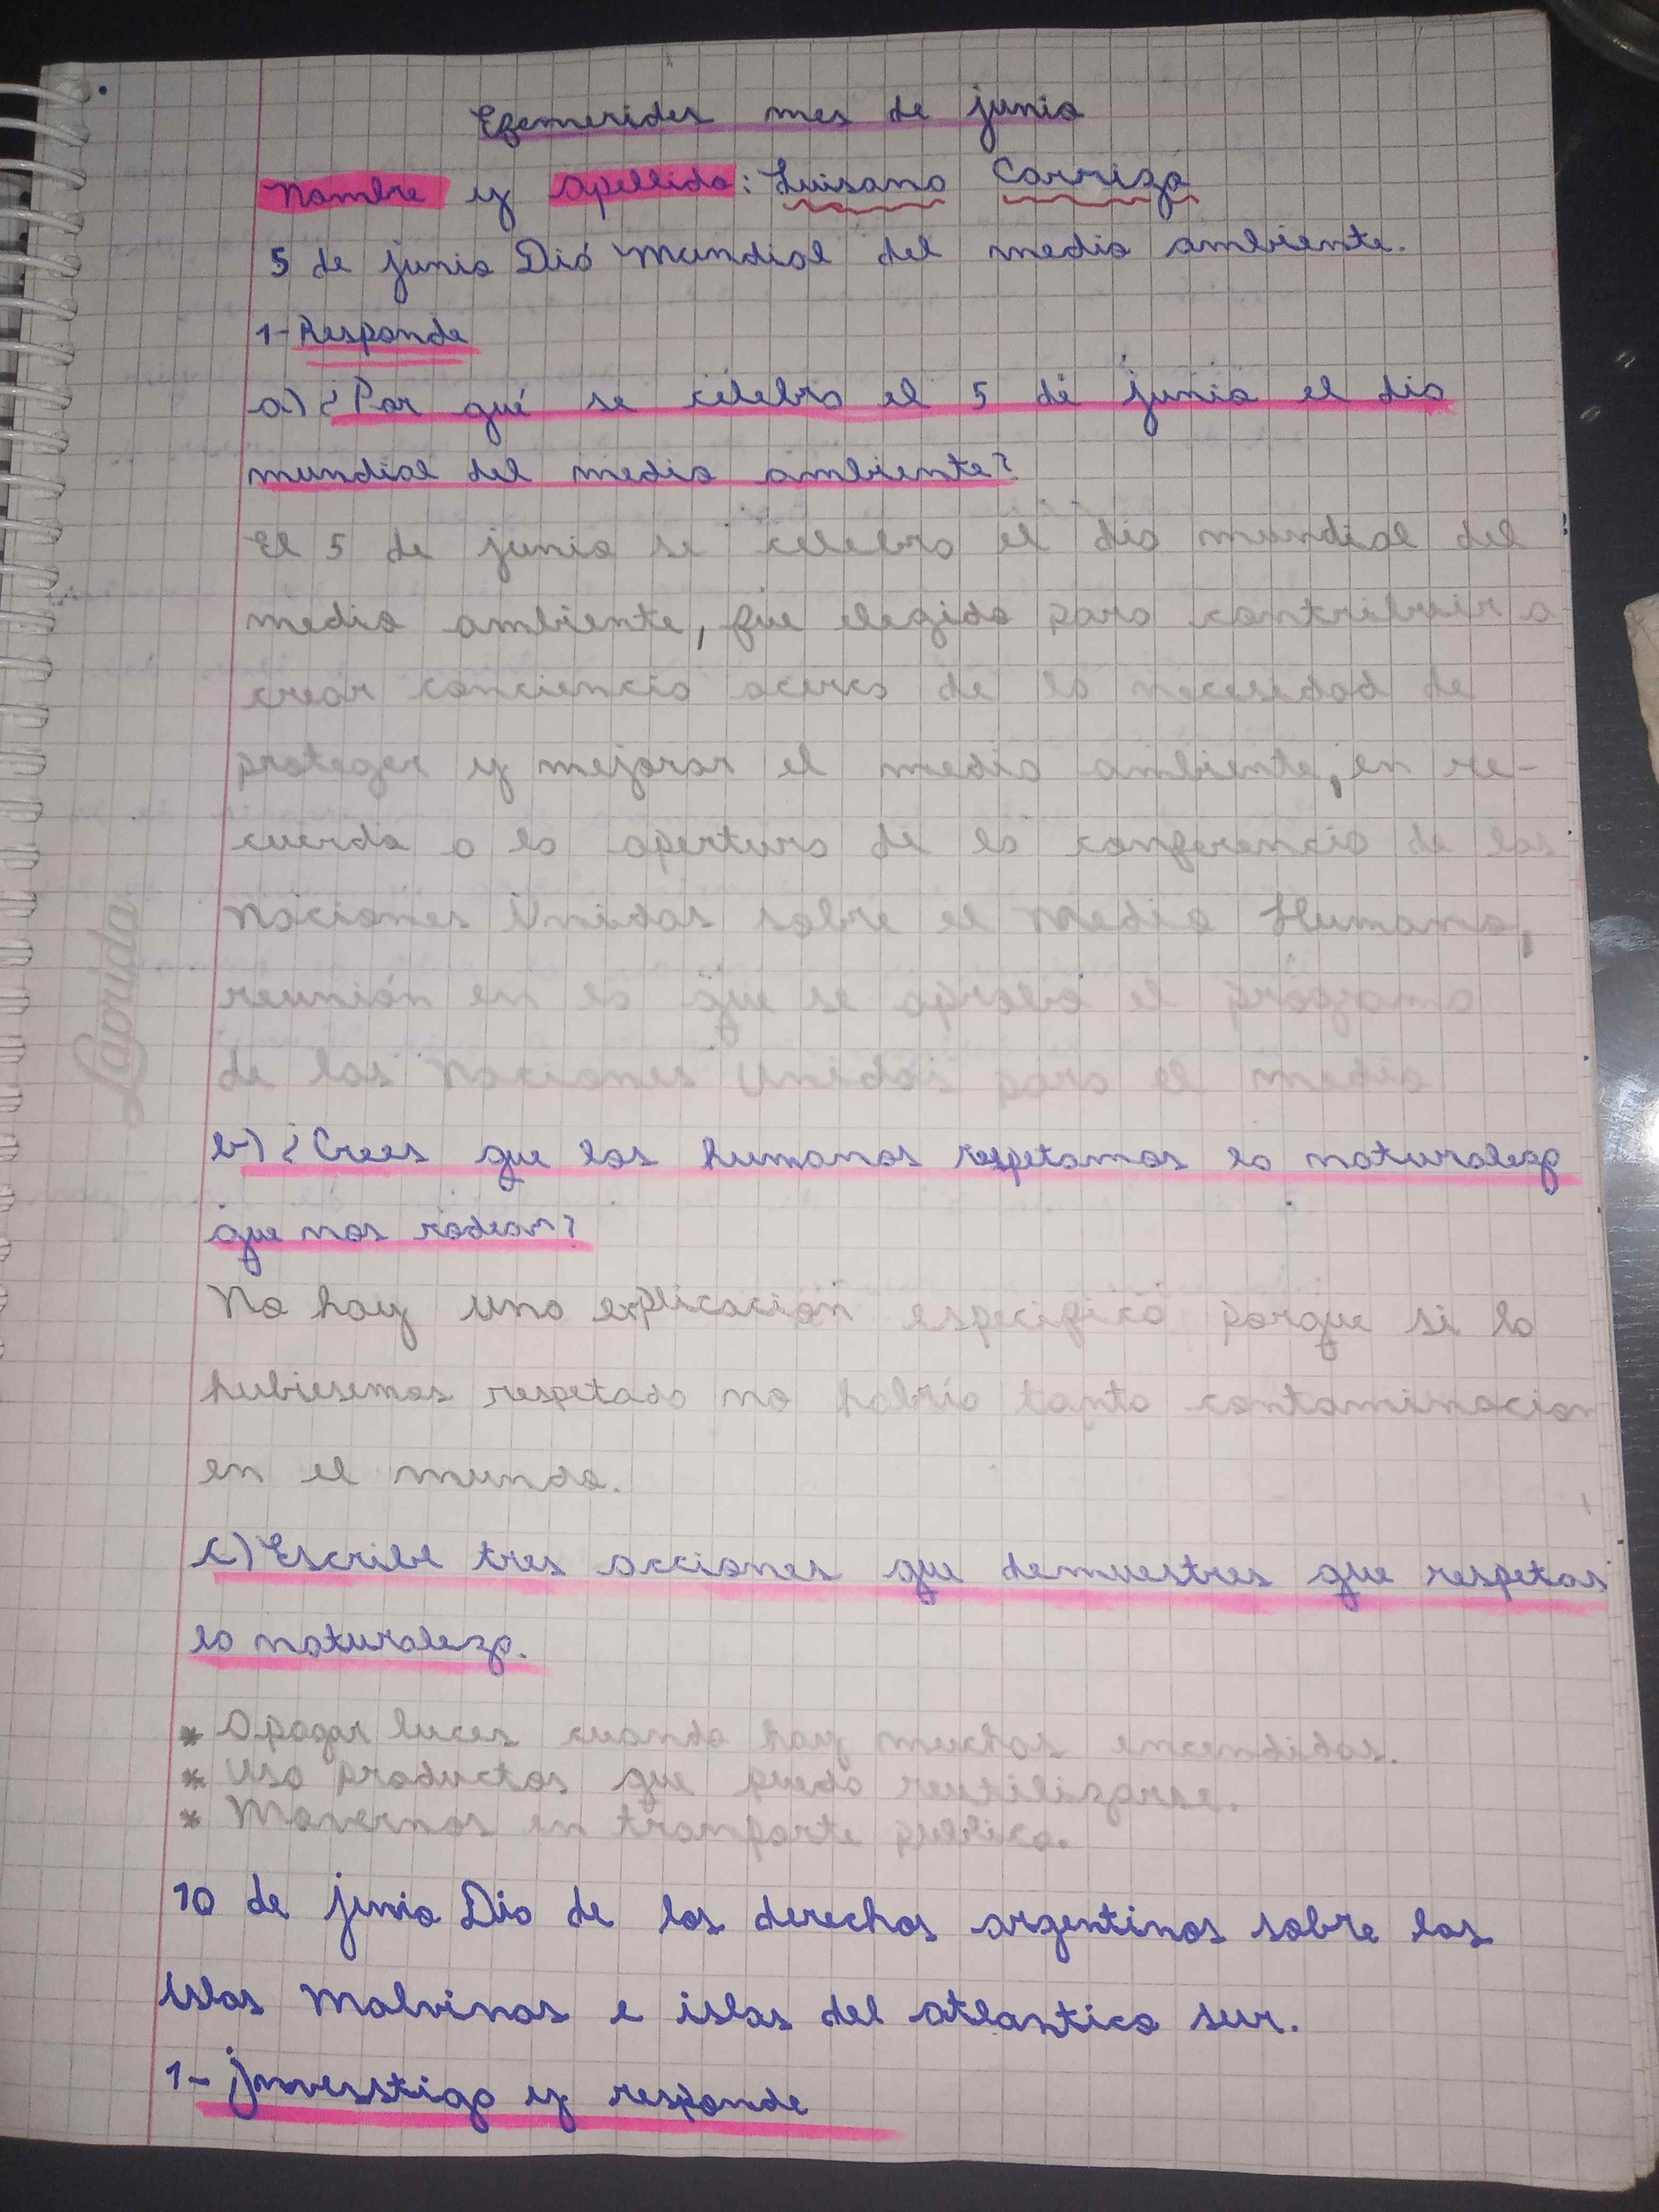 Efemerides mes de junio
Nombre y apellido: Luisana Carriza
5 de junio Diá Mundial del medio ambiente.
1- Responde
a) ¿Por qué se celebra el 5 de junio el dia
mundial del medio ambiente?
El 5 de junio se celebra el dia mundial del
medio ambiente, fue elegido para contribuir a
crear conciencia acerca de la necesedad de
proteger y mejorar el medio ambiente, en re-
cuerdo a la apertura de la conferencia de las
Naciones Unidas sobre el Medio Humano,
reunión en la que se aprobó el programa
de las Naciones Unidas para el medio
b) ¿Crees que los humanos respetamos la naturaleza
que nos rodean?
No hay una explicación especifica porque si lo
hubiesemos respetado no habria tanta contaminacion
en el mundo.
c) Escribe tres acciones que demuestres que respetas
la naturaleza.
* Apagar luces cuando hay muchas encendidas.
* Uso productos que pueda reutilizarse.
* Movernos en tranporte publico.
10 de junio Dia de los derechos argentinos sobre las
Islas Malvinas e islas del atlantico sur.
1- Investiga y responde
Laprida